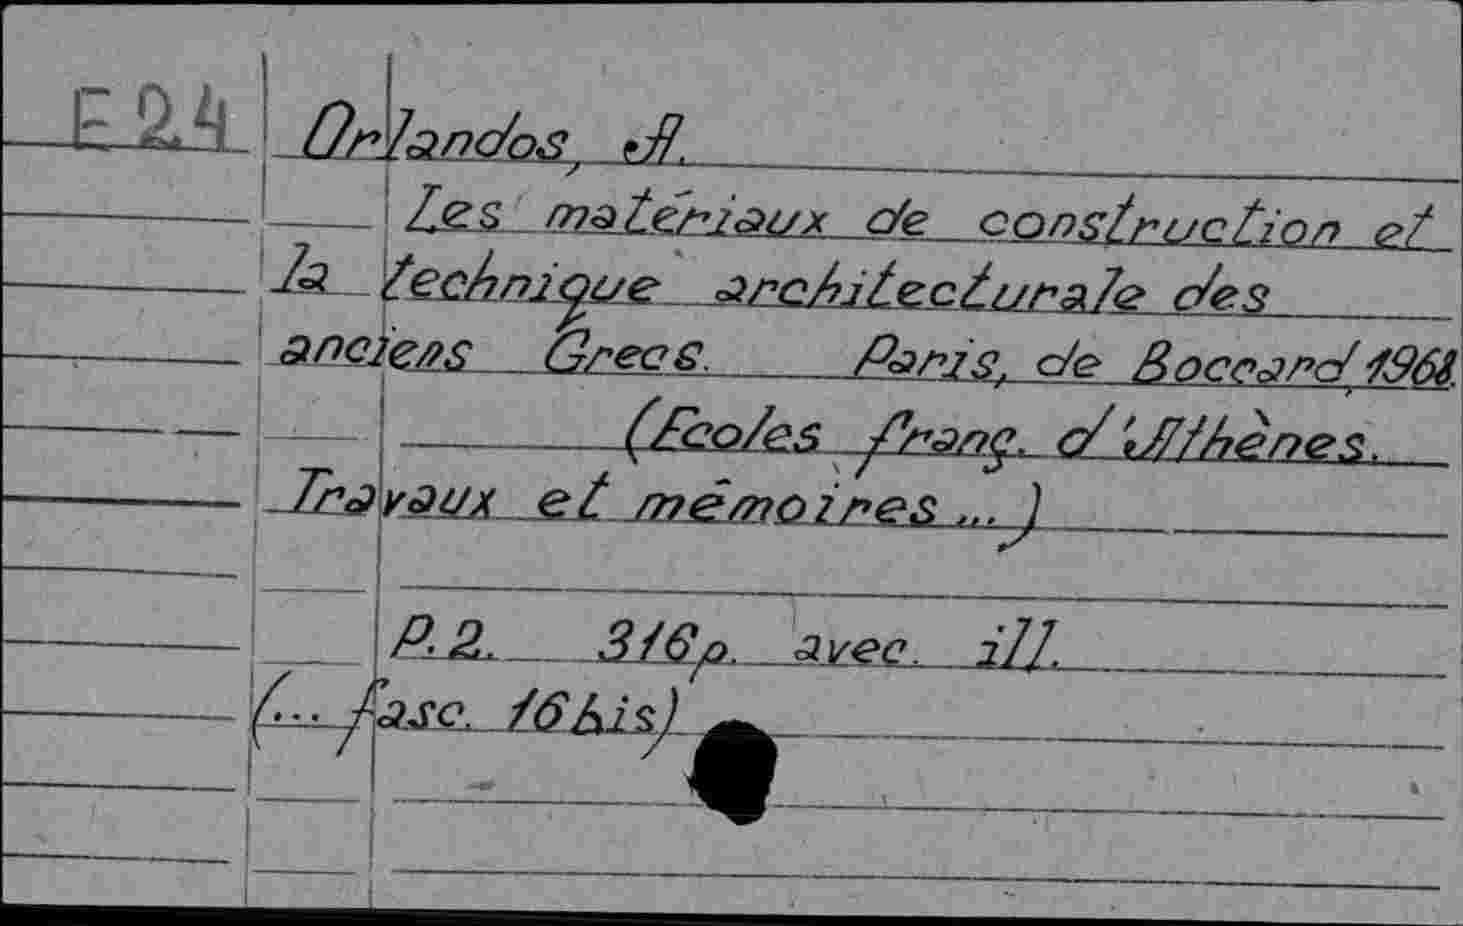 E24 Orlandos, A.
Les matériaux de construction et
la technique architecturale des
anciens Grecs. Paris, de Boccard, 1968.
(Ecoles franç. d'Athènes.
Travaux et mémoires ...)
P. 2. 316 p. avec. ill.
(... fasc. 16 bis)